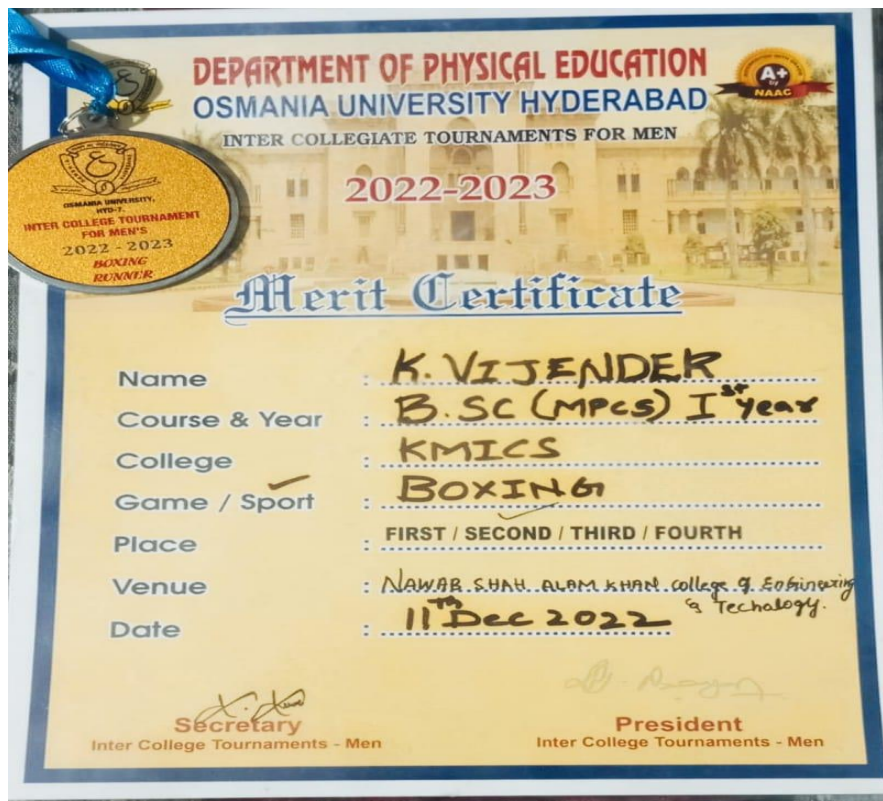 DEPARTMENT OF PHYSICAL EDUCATION
OSMANIA UNIVERSITY HYDERABAD
INTER COLLEGIATE TOURNAMENTS FOR MEN
2022-2023
A+
by
NAAC
OSMANIA UNIVERSITY,
HYD-7.
INTER COLLEGE TOURNAMENT
FOR MEN'S
2022 - 2023
BOXING
RUNNER
Merit Certificate
Name : K. VIJENDER
Course & Year : B.SC (MPCS) Ist year
College : KMICS
Game / Sport : BOXING
Place : FIRST / SECOND / THIRD / FOURTH
Venue : NAWAB SHAH ALAM KHAN college of Engineering
& Techalogy.
Date : 11Th Dec 2022
Secretary
Inter College Tournaments - Men
President
Inter College Tournaments - Men